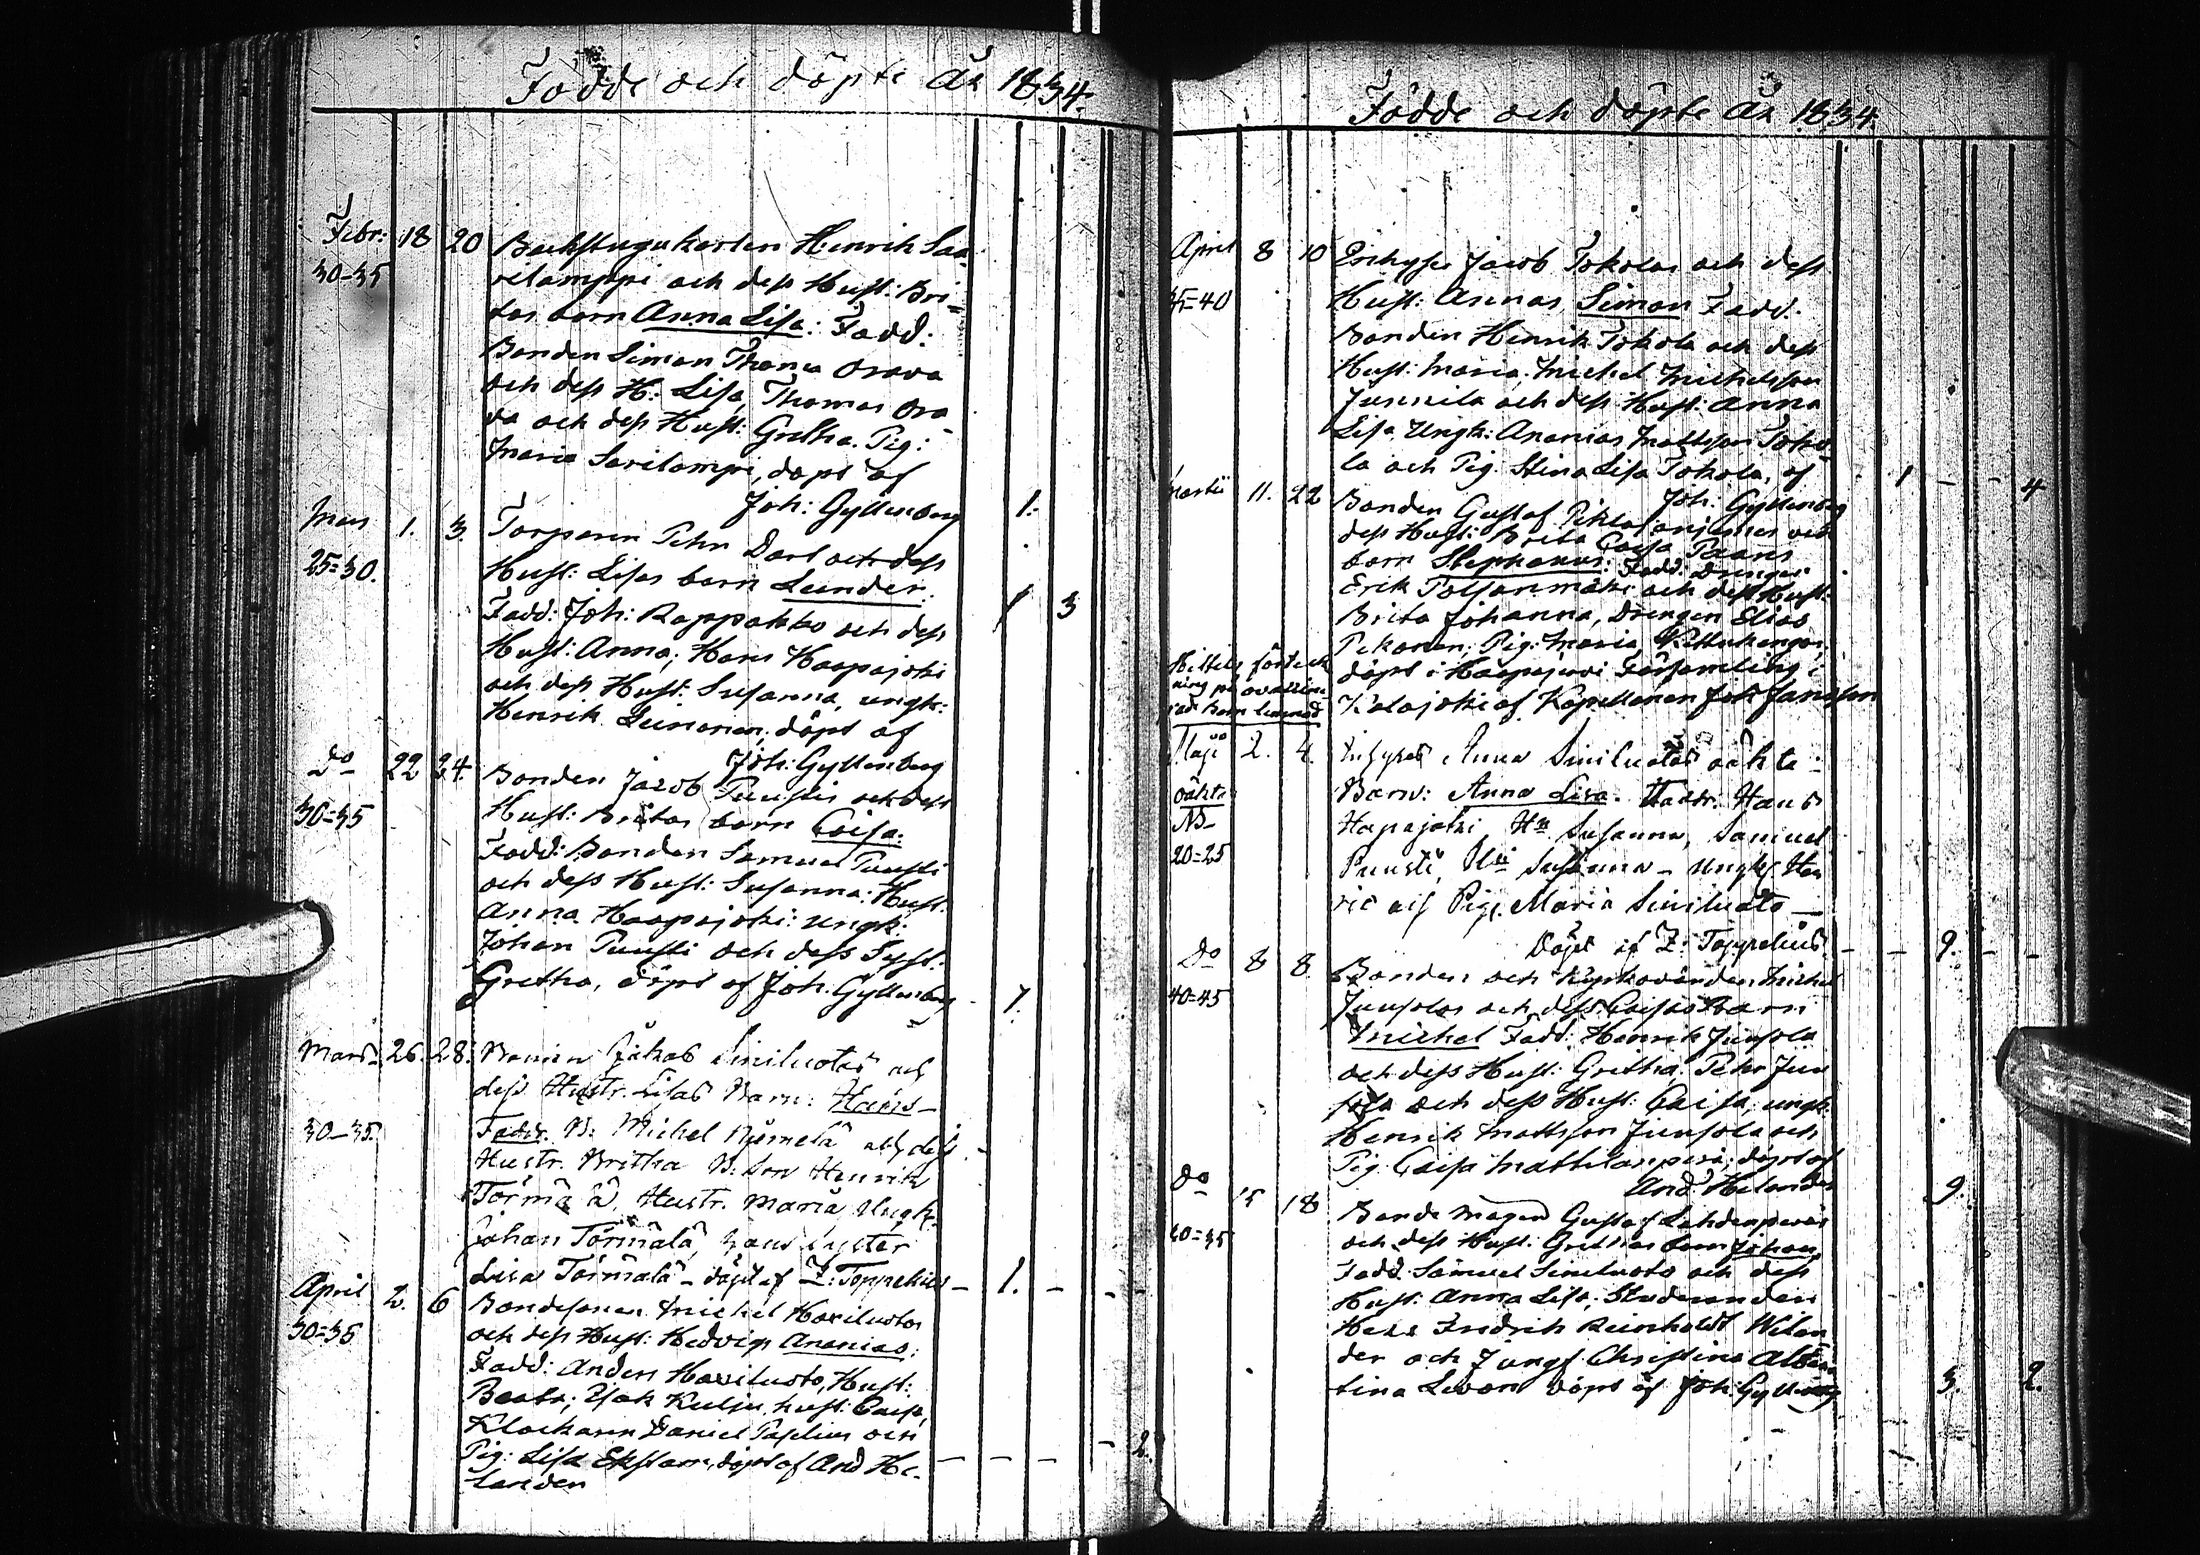 Födde och döpte År 1834.
Febr: 18 20 Backstugukarlen Henrik Saa-
30-35 rilamppi och dess Hust: Bri-
tas barn Anna Lisa: Fadd:
Bonden Simon Thomas Orava
och dess H: Lisa, Thomas Ora-
va och dess Hust: Gretha. Pig:
Maria Sarilampi, döpt af
Joh: Gyllenberg 1.
Mars 1. 3. Torparen Pehr Dahl och dess
25=30. Hust: Lisas barn Leander. 1 3
Fadd: Joh: Rappakko och dess
Hust: Anna; Hans Haapajoki
och dess Hust: Susanna, ungk:
Henrik Leinonen, döpt af
Joh: Gyllenberg
Do 22 24. Bonden Jacob Puustis och dess
30=35 Hust: Britas barn Caisa.
Fadd: Bonden Samuel Puusti
och dess Hust: Susanna: Hust:
Anna Haapajoki: ungk:
Johan Puusti och dess Syst:
Gretha, döpt af Joh. Gyllenberg 7.
Mars 26. 28. Bonden Jakob Siniluotos och
dess Hustr. Lisas Barn: Hans
30-35. Faddr. B: Michel och dess
Hustr. Britha B: Son Henrik
Hustr. Maria Ungk.
Johan Törmälä, hans Syster
Lisa Törmälä - döpt af Z: Toppelius - 1. -
April 2. 6 Bondesonen Michel Hariluotos
30=35 och dess Hust: Hedvigs Ananias:
Fadd: Anders Hariluoto, Hust:
Beata; Isak Kulju, hust: Caisa,
Klockaren Daniel och
Pig: Lisa Ekstam, döpt af And He- - - - - 2.
lander
Födde och döpte År 1834.
April 8 10 Jacob Tokolas och dess
35=40 Hust: Annas Simon Fadd.
Bonden Henrik Tokola och dess
Hust: Maria, Michel Michelsson
Junnila och dess Hust: Anna
Lisa, Ungk: Ananias Mattsson Toko-
la och Pig. Stina Lisa Tokola, af 1 - - 4
Joh: Gyllenberg
Martii 11. 22 Bonden Gustaf och
dess Hust: Brita Caisa
barn Stephanus: Fadd: Drengen
Erik och dess Hust:
Brita Johanna, Drengen Elias
Pekonen; Pig: Maria
döpt i Haapajervi Församling i
Kalajoki af Kapellanen Joh Jansson
Maji 2. 4. Anna Siniluotos oäkta
oäkta Barn: Anna Lisa. Faddr. Hans
NB Hapajoki, Hu Susanna, Samuel
20=25 Puusti, Hu Susanna - Ungk. Hen-
ric och Pig. Maria Siniluoto
Döpt af Z: Toppelius. - - 9. - -
Do 8 8. Bonden och Kyrkovärden Michel
40=45 Junsolas och dess Caisas barn
Michel Fadd: Henrik Junsola
och dess Hust: Gretha. Pehr Jun
sola och dess Hust: Caisa, ungk.
Henrik Mattsson Junsola och
Pig: Caisa döpt af
And Helander 9.
Do 15 18 Bonde Magen Gustaf Lehdenperäs
30=35 och dess Hust: Grethas barn Johan
Fadd. Samuel Siniluoto och dess
Hust: Anna Lisa, Studeranden
Herr Fredrik Reinholdt Welan
der och Jungf. Christina Alber
tina Levon döpt af Joh: Gyllenberg 3. 2.